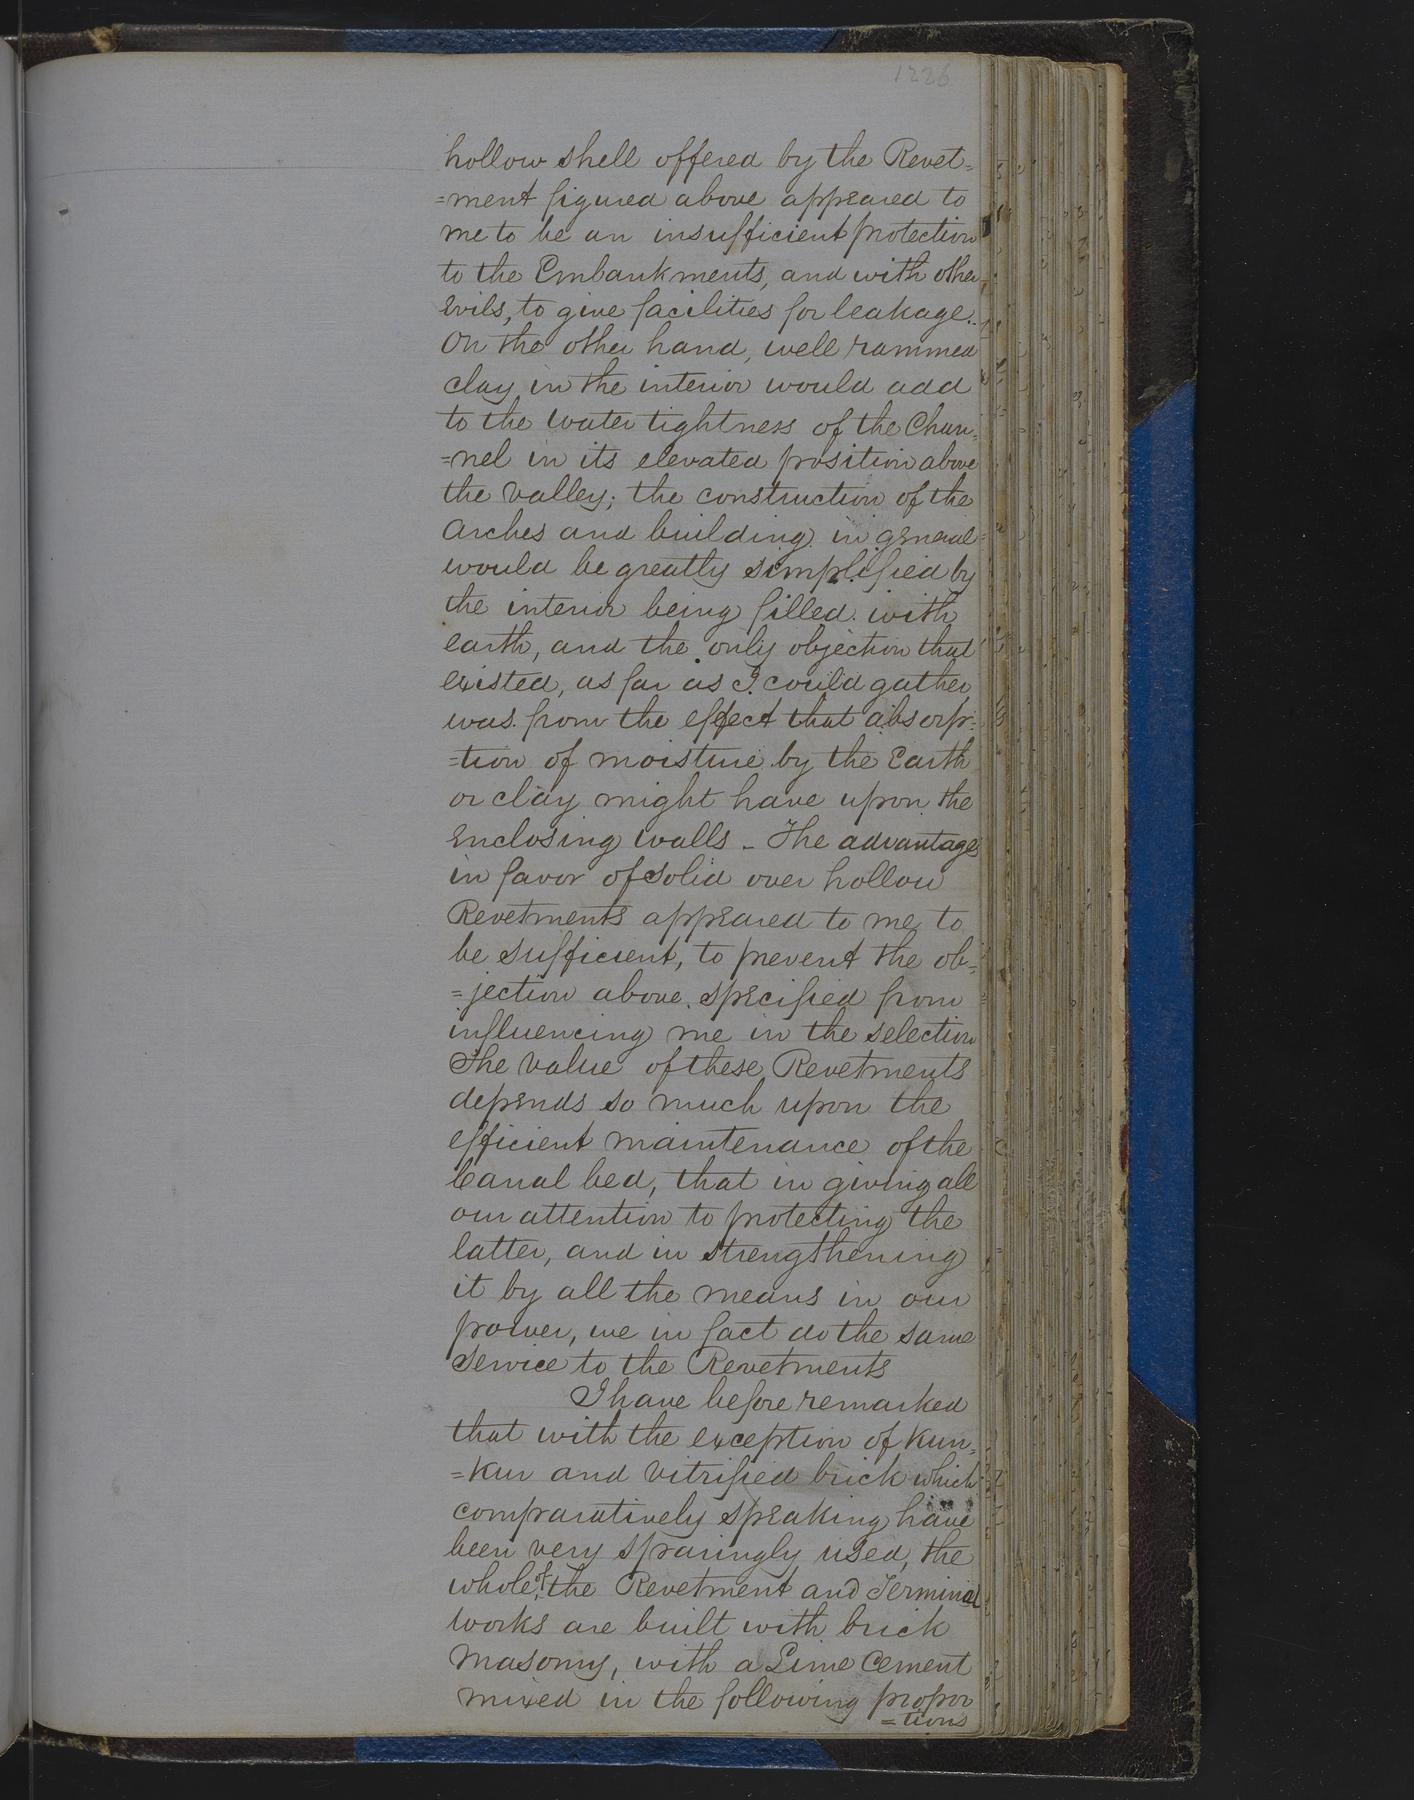 1226
hollow shell offered by the Revet=
=ment figured above appeared to
me to be an insufficient protection
to the Embankments, and with other
evils, to give facilities for leakage.
On the other hand, well rammed
clay in the interior would add
to the water tightness of the Chan=
=nel in its elevated position above
the valley; the construction of the
Arches and building in general
would be greatly simplified by
the interior being filled with
earth, and the only objection that
existed, as far as I could gather
was from the effect that absorp=
=tion of moisture by the Earth
or clay might have upon the
Enclosing walls - The advantage
in favor of solid over hollow
Revetments appeared to me to
be sufficient, to prevent the ob=
=jection above specified from
influencing me in the selection
The value of these Revetments
depends so much upon the
efficient maintenance of the
Canal bed, that in giving all
our attention to protecting the
latter, and in strengthening
it by all the means in our
power, we in fact do the same
service to the Revetments
I have before remarked
that with the exception of Kun=
=Kur and vitrified brick which
comparatively speaking have
been very sparingly used, the
whole of the Revetment and Terminal
works are built with brick
Masonry, with a Lime Cement
mixed in the following propor
=tions